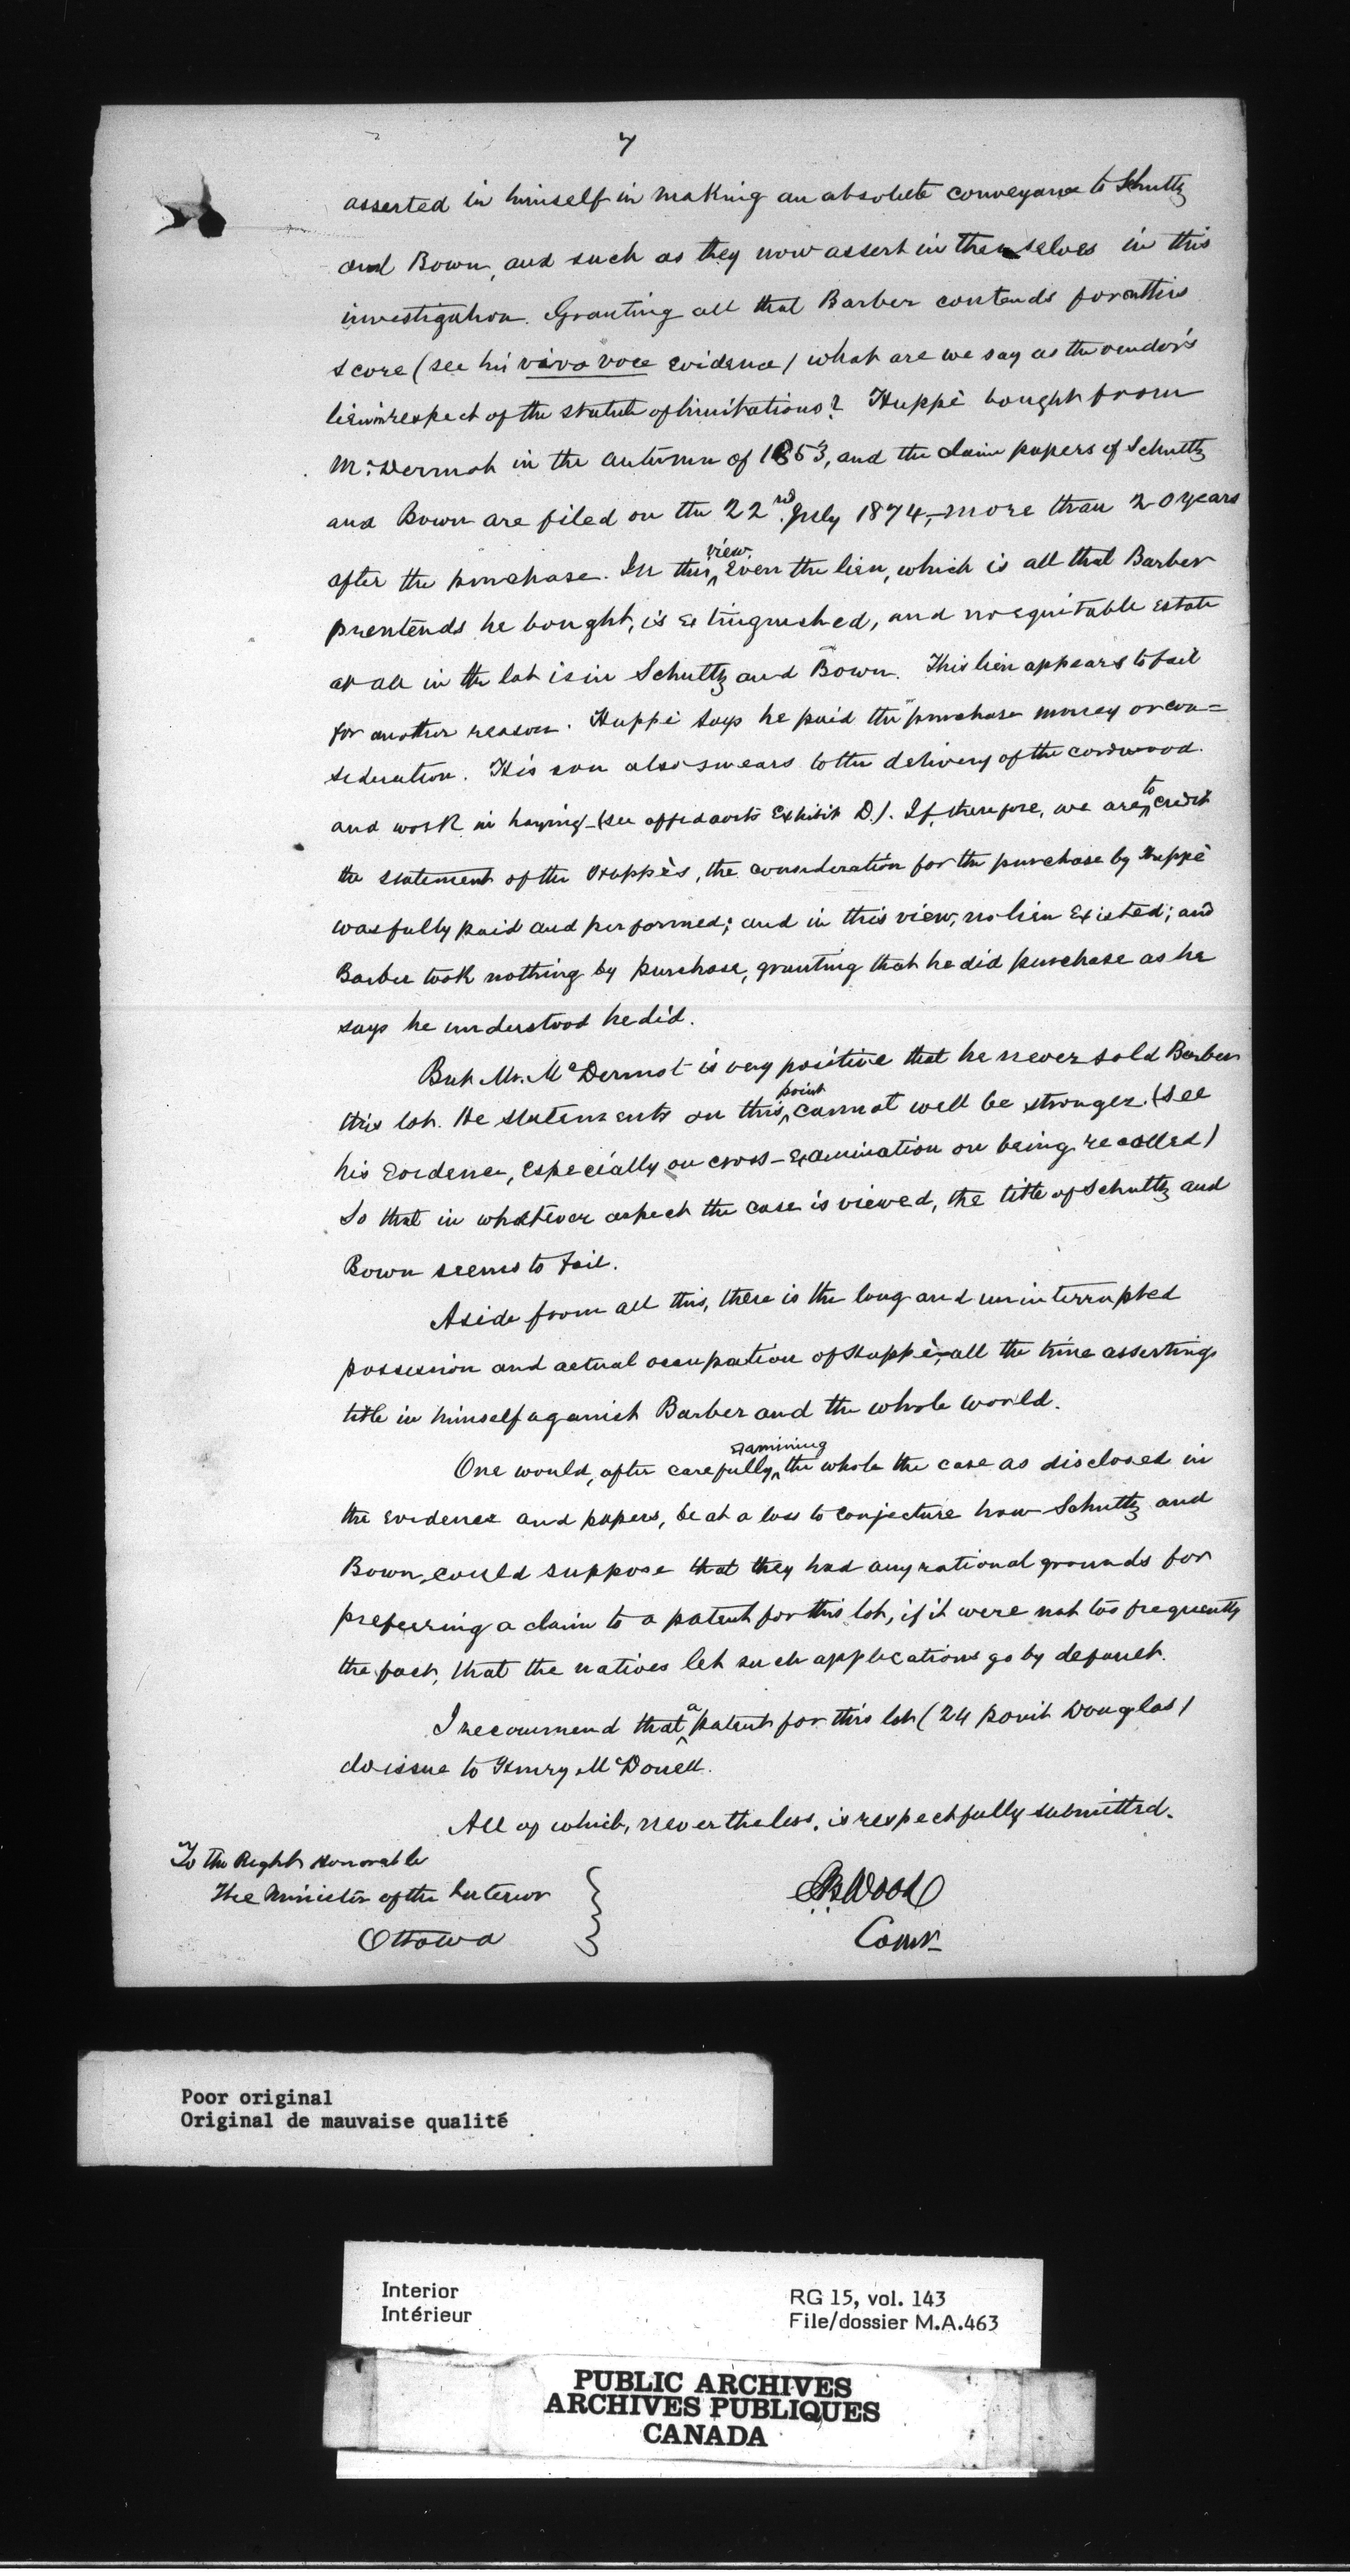 7
asserted in himself in making an absolute conveyance to Schultz
and Bown, and such as they now assert in themselves in this
investigation. Granting all that Barber contends for on this
score (see his viva voce evidence) what are we say as the vendor's
lien in respect of the statute of limitations? Huppè bought from
McDermot in the autumn of 1853, and the claim papers of Schultz
and Bown are filed on the 22nd. July 1874,—more than 20 years
after the purchase. In this view even the lien, which is all that Barber
prentends he bought, is extinguished, and no equitable estate
at all in the lot is in Schultz and Bown. This lien appears to fail
for another reason. Huppè says he paid the purchase money or con=
sideration. His son also swears to the delivery of the cordwood
and work in haying—(see affidavits Exhibit D.). If, therefore, we are to credit
the statement of the Huppès, the consideration for the purchase by Huppè
was fully paid and performed; and in this view, no lien existed; and
Barber took nothing by purchase, granting that he did purchase as he
says he understood he did.
But Mr. McDermot is very positive that he never sold Barber
this lot. He statements on this point cannot well be stronger. (See
his evidence, especially on cross-examination on being recalled)
So that in whatever aspect the case is viewed, the title of Schultz and
Bown seems to fail.
Aside from all this, there is the long and uninterrupted
possession and actual occupation of Huppè, all the time asserting
title in himself against Barber and the whole world.
One would, after carefully examining the whole the case as disclosed in
the evidence and papers, be at a loss to conjecture how Schultz and
Bown, could suppose that they had any rational grounds for
preferring a claim to a patent for this lot, if it were not too frequently
the fact, that the natives let such applications go by default.
I recommend that a patent for this lot (24 Point Douglas)
do issue to Henry McDonell.
All of which, nevertheless, is respectfully submitted.
To the Right Honorable
The Minister of the Interior
Ottawa
Wood
Comr
Poor original
Original de mauvaise qualité
Interior
Intérieur
RG 15, vol. 143
File/dossier M.A.463
PUBLIC ARCHIVES
ARCHIVES PUBLIQUES
CANADA